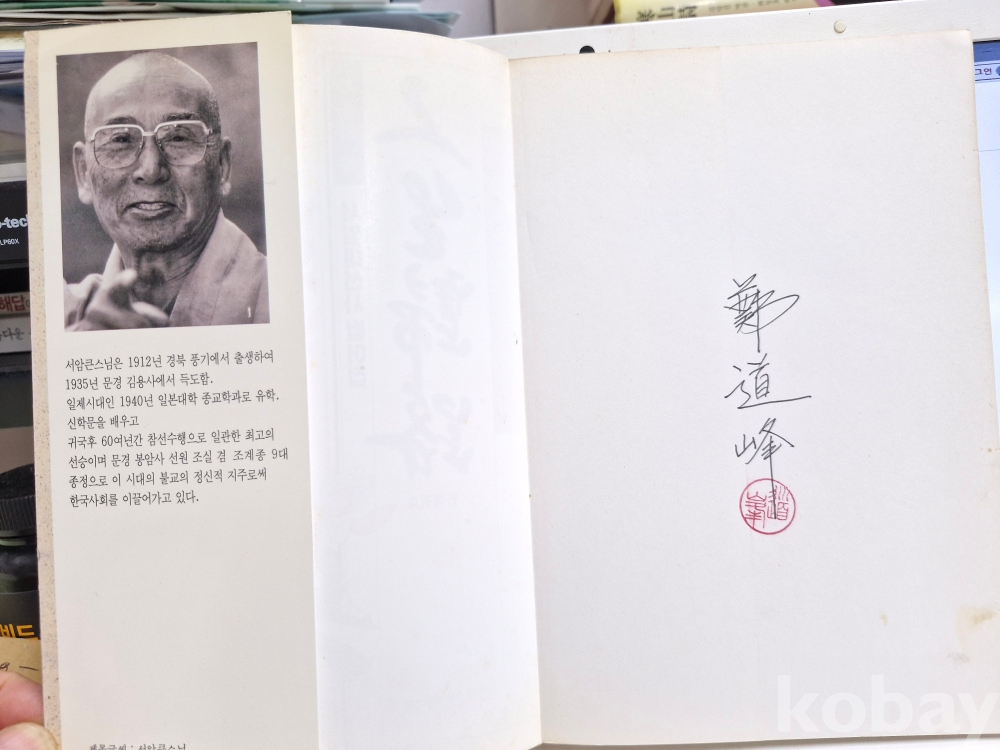 서암큰스님은 1912년 경북 풍기에서 출생하여
1935년 문경 김용사에서 득도함.
일제시대인 1940년 일본대학 종교학과로 유학,
신학문을 배우고
귀국후 60여년간 참선수행으로 일관한 최고의
선승이며 문경 봉암사 선원 조실 겸 조계종 9대
종정으로 이 시대의 불교의 정신적 지주로써
한국사회를 이끌어가고 있다.
제목글씨 : 서암큰스님
鄭
道
峰
道峯
-tec
LP60X
해답
다운
그인
kobay